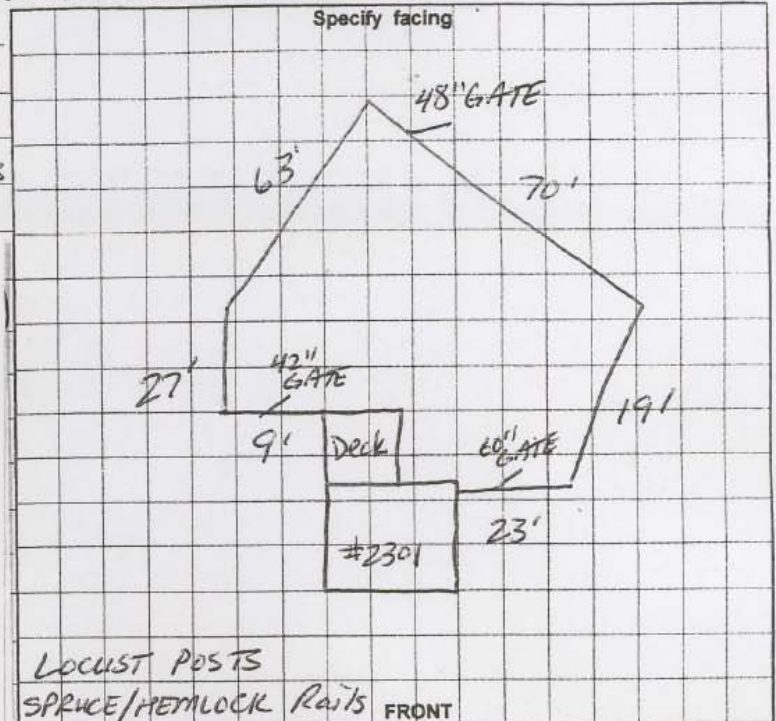 Specify facing
48" GATE
63'
70'
27'
42"
GATE
9'
Deck
60"
GATE
19'
23'
#2301
LOCUST POSTS
SPRUCE/HEMLOCK Rails FRONT